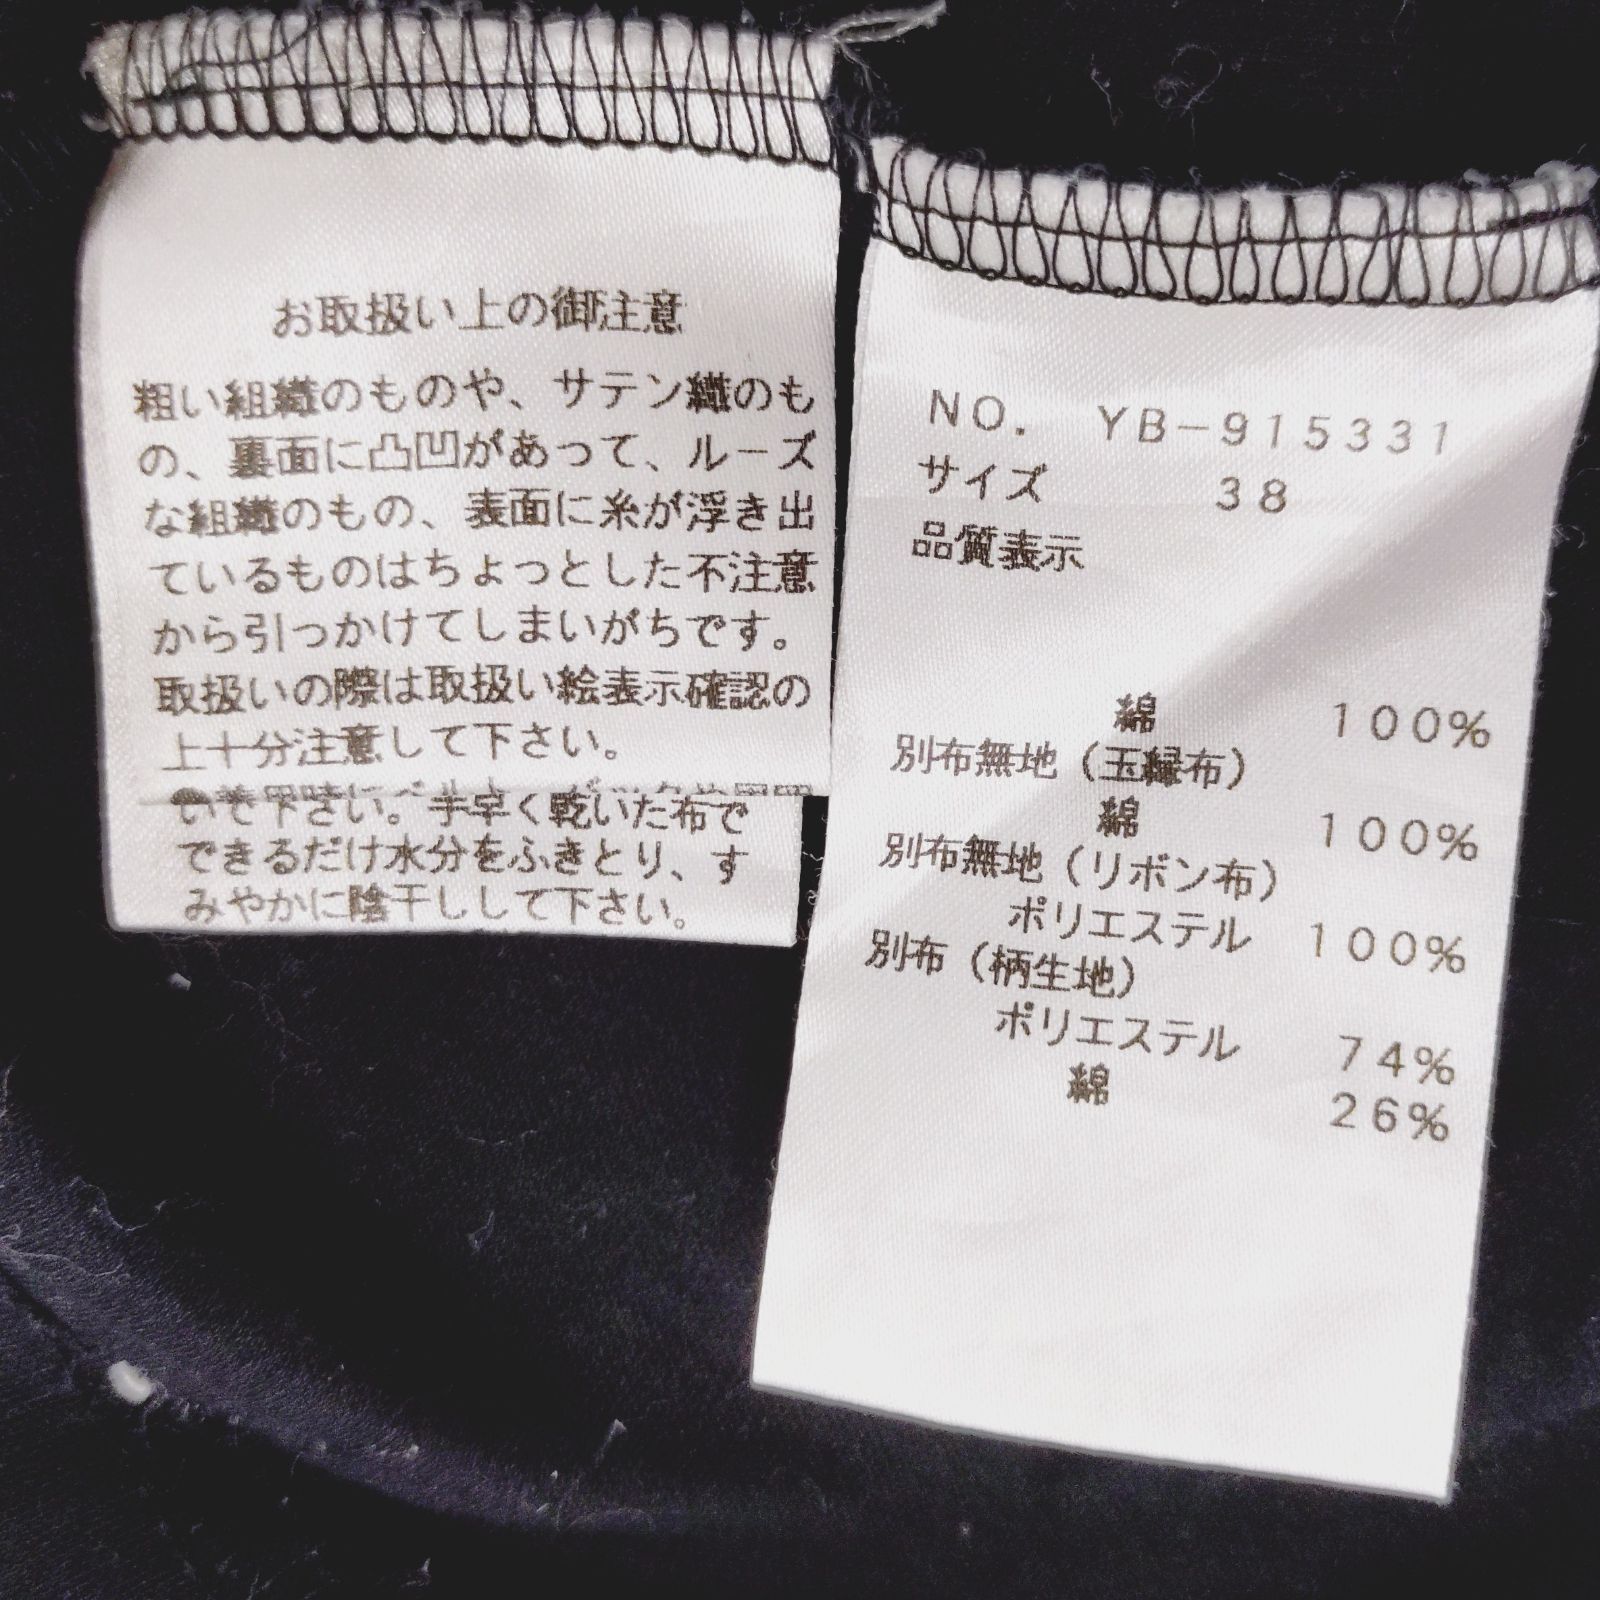 お取扱い上の御注意
粗い組織のものや、サテン織のも
の、裏面に凸凹があって、ルーズ
な組織のもの、表面に糸が浮き出
ているものはちょっとした不注意
から引っかけてしまいがちです。
取扱いの際は取扱い絵表示確認の
上十分注意して下さい。
下さい。手早く乾いた布で
できるだけ水分をふきとり、す
みやかに陰干しして下さい。
NO. YB-915331
サイズ 38
品質表示
綿 100%
別布無地(玉縁布)
綿 100%
別布無地(リボン布)
ポリエステル 100%
別布(柄生地)
ポリエステル 74%
綿 26%